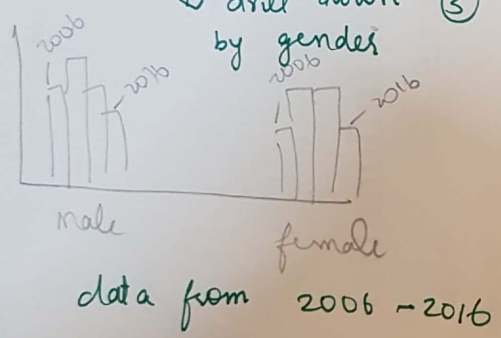 ↳ drill down ③
by gender
2006
2016
2006
2016
male
female
data from 2006 - 2016